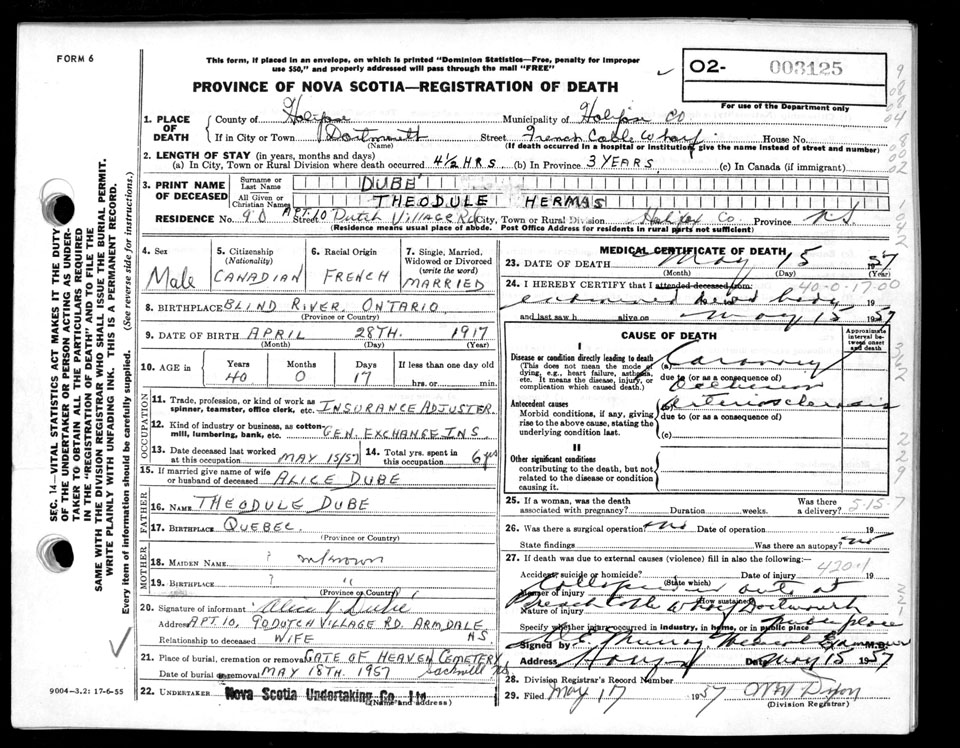 FORM 6
This form, if placed in an envelope, on which is printed "Dominion Statistics—Free, penalty for improper
use $50," and properly addressed will pass through the mail "FREE"
PROVINCE OF NOVA SCOTIA—REGISTRATION OF DEATH
O2- 003125
For use of the Department only
1. PLACE OF DEATH
County of Halifax Municipality of Halifax Co
If in City or Town Dartmouth Street French Cable Wharf House No.
(Name) (If death occurred in a hospital or institution, give the name instead of street and number)
2. LENGTH OF STAY (in years, months and days)
(a) In City, Town or Rural Division where death occurred 4½ HRS (b) In Province 3 YEARS (c) In Canada (if immigrant)
3. PRINT NAME OF DECEASED
Surname or Last Name DUBE'
All Given or Christian Names THEODULE HERMAS
RESIDENCE No. 90 APT. 10 Street Dutch Village Rd City, Town or Rural Division Halifax Co. Province NS
(Residence means usual place of abode. Post Office Address for residents in rural parts not sufficient)
4. Sex Male
5. Citizenship (Nationality) CANADIAN
6. Racial Origin FRENCH
7. Single, Married, Widowed or Divorced (write the word) MARRIED
8. BIRTHPLACE BLIND RIVER, ONTARIO
(Province or Country)
9. DATE OF BIRTH APRIL 28TH. 1917
(Month) (Day) (Year)
10. AGE in Years Months Days If less than one day old
40 0 17 hrs. or min.
OCCUPATION
11. Trade, profession, or kind of work as
spinner, teamster, office clerk, etc. INSURANCE ADJUSTER.
12. Kind of industry or business, as cotton-
mill, lumbering, bank, etc. GEN. EXCHANGE INS.
13. Date deceased last worked at this occupation MAY 15/57
14. Total yrs. spent in this occupation 6 yrs
15. If married give name of wife
or husband of deceased ALICE DUBE
FATHER
16. NAME THEODULE DUBE
17. BIRTHPLACE QUEBEC.
(Province or Country)
MOTHER
18. MAIDEN NAME ? unknown
19. BIRTHPLACE ? "
(Province or Country)
20. Signature of informant Alice V. Dube
Address APT. 10, 90 DUTCH VILLAGE RD. ARMDALE NS.
Relationship to deceased WIFE
21. Place of burial, cremation or removal GATE OF HEAVEN CEMETERY
Date of burial or removal MAY 18TH. 1957 Sackville NS
22. UNDERTAKER Nova Scotia Undertaking Co. Ltd
(Name and address)
MEDICAL CERTIFICATE OF DEATH
23. DATE OF DEATH May 15 57
(Month) (Day) (Year)
24. I HEREBY CERTIFY that I attended deceased from: 40-0-17-00
examined dead body 19
and last saw h alive on May 15 1957
CAUSE OF DEATH
Approximate interval between onset and death
I
Disease or condition directly leading to death
(This does not mean the mode of
dying, e.g., heart failure, asthenia,
etc. It means the disease, injury, or
complication which caused death.)
(a) Coronary
due to (or as a consequence of)
Occlusion
Antecedent causes
Morbid conditions, if any, giving
rise to the above cause, stating the
underlying condition last.
Arteriosclerosis
due to (or as a consequence of)
(c)
II
Other significant conditions
contributing to the death, but not
related to the disease or condition
causing it.
25. If a woman, was the death
associated with pregnancy? Duration weeks. Was there a delivery? 5-15 7
26. Was there a surgical operation? no Date of operation 19
State findings Was there an autopsy? no
27. If death was due to external causes (violence) fill in also the following:—
420.1
Accident, suicide or homicide? (State which) Date of injury 19
Collapsed in auto at
Manner of injury (How sustained)
French Cable Wharf Dartmouth
Nature of injury
Specify whether injury occurred in industry, in home, or in public place public place
Signed by Murray Medical Examiner M.D.
Address Date May 15 1957
28. Division Registrar's Record Number
29. Filed May 17 1957
(Division Registrar)
SEC. 14—VITAL STATISTICS ACT MAKES IT THE DUTY
OF THE UNDERTAKER OR PERSON ACTING AS UNDER-
TAKER TO OBTAIN ALL THE PARTICULARS REQUIRED
IN THE "REGISTRATION OF DEATH" AND TO FILE THE
SAME WITH THE DIVISION REGISTRAR WHO SHALL ISSUE THE BURIAL PERMIT.
WRITE PLAINLY WITH UNFADING INK. THIS IS A PERMANENT RECORD.
Every item of information should be carefully supplied. (See reverse side for instructions.)
9004—3.2: 17-6-55